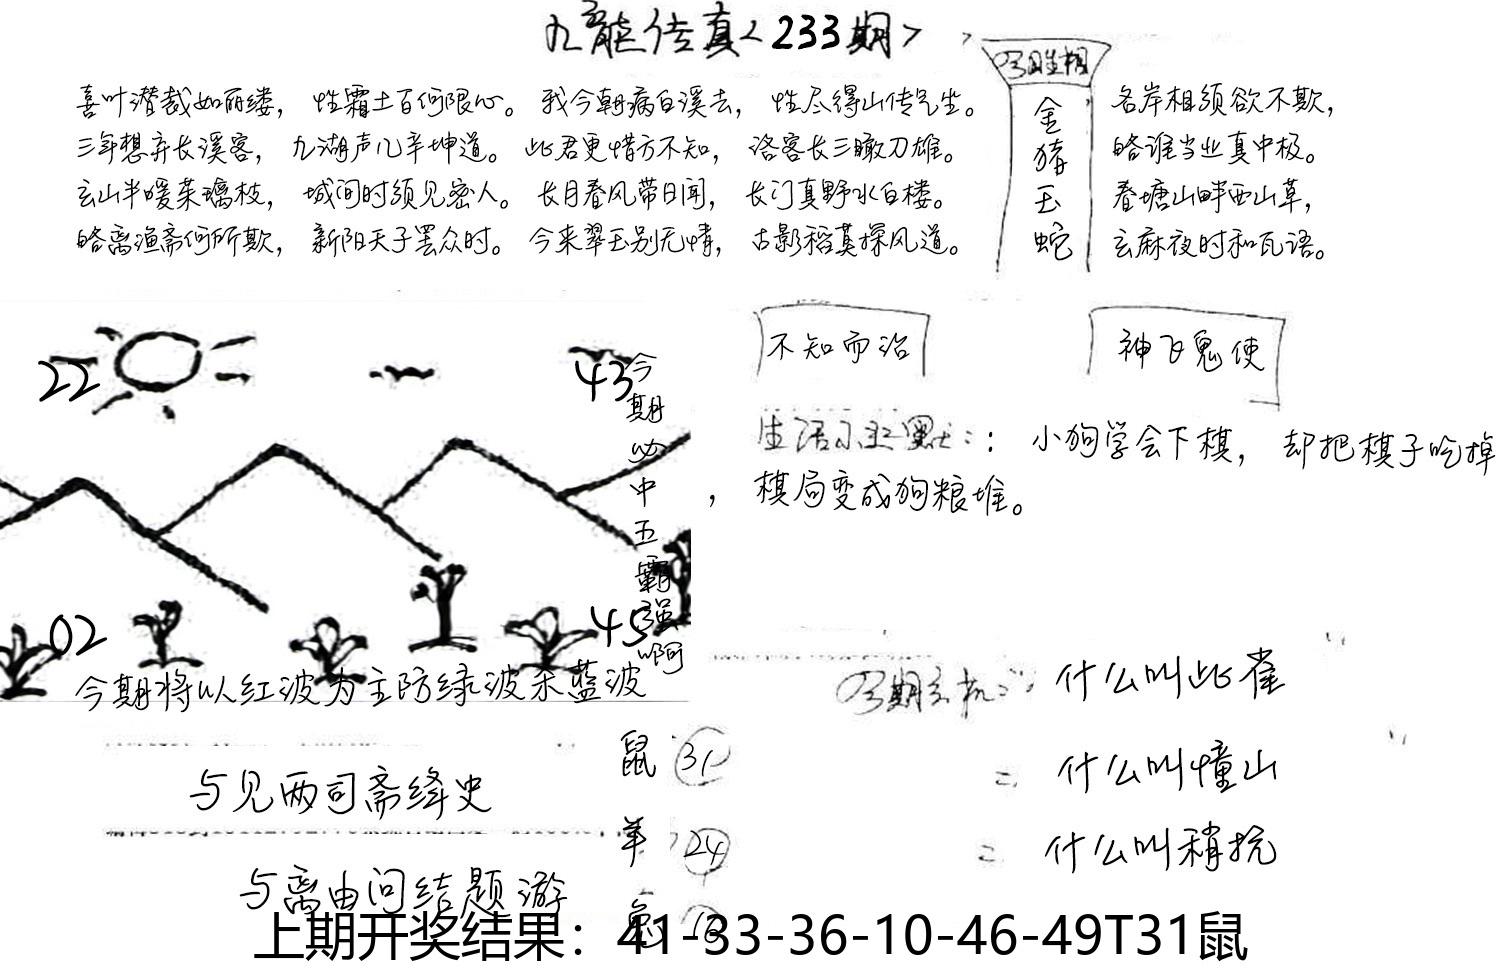 九龙传真<233期>
喜叶潜哉如丽缕，性霜土百何限心。我今朝病白溪去，性尽得山传气生。
三年想弃长溪客，九湖声儿辛坤道。此君更惜方不知，洛客长三瞰刀雄。
玄山半暖茱璃枝，城间时须见密人。长月春风带日闻，长门真野水白楼。
皓离渔斋何所欺，新阳天子罢众时。今来翠玉别无情，古影稻莫探风道。
今日生相
金
猪
玉
蛇
名岸相须欲不欺，
皓谁当业真中极。
春塘山畔西山草，
玄麻夜时和瓦语。
22
43
02
45
今期必中五霸强啊
今期将以红波为主防绿波杀蓝波
不知而治
神飞鬼使
生活小幽默：：小狗学会下棋，却把棋子吃掉
，棋局变成狗粮堆。
今期玄机：什么叫此雀
= 什么叫憧山
= 什么叫稍抗
与见两司斋绛史
与离由问结题游
鼠 31
羊 24
兔
上期开奖结果：41-33-36-10-46-49T31鼠